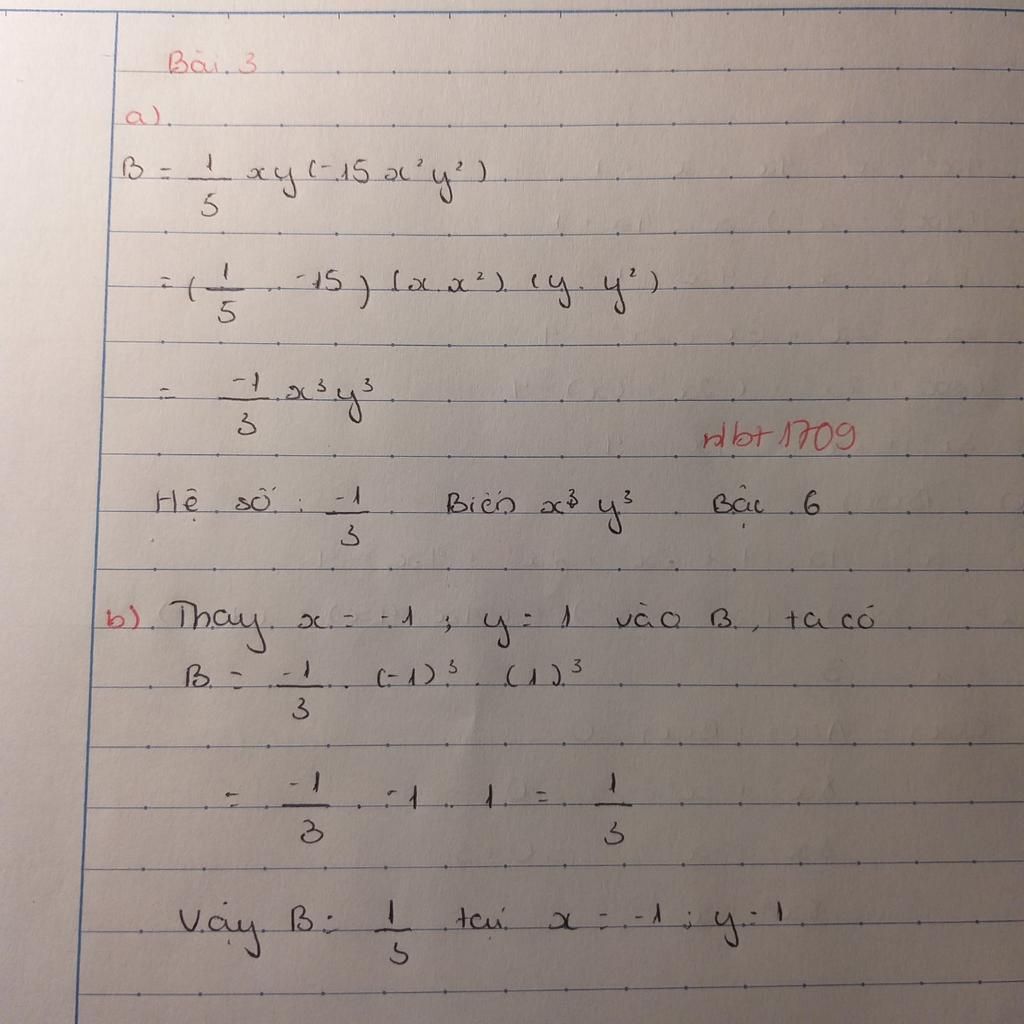 Bài 3
a)
B = 1/5 xy (-15 x² y²)
= (1/5 . -15) (x.x²). (y.y²)
= -1/3 x³ y³
nlbt 1709
Hệ số : -1/3 Biến x³ y³ Bậc 6
b) Thay x = -1 ; y = 1 vào B, ta có
B = -1/3 . (-1)³ . (1)³
= -1/3 . -1 . 1 = 1/3
Vậy B = 1/3 tại x = -1 ; y = 1